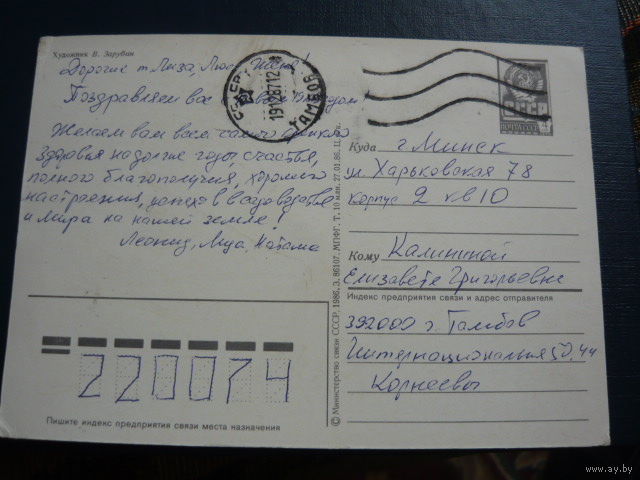 Художник В. Зарубин
Дорогие т. Лиза, Люся, Женя!
Поздравляем вас с Новым годом!
Желаем вам всем самого крепкого
здоровья на долгие годы, счастья,
полного благополучия, хорошего
настроения, успехов в
и мира на нашей земле!
Леонид, Луда, Наташа
19 12 87 12
ТАМБОВ
СССР
Куда г. Минск
ул Харьковская 78
корпус 2 кв 10
Кому Калининой
Елизавете Григорьевне
Индекс предприятия связи и адрес отправителя
392000 г. Тамбов
Интернациональная 50, 44
Корнеевы
220074
Пишите индекс предприятия связи места назначения
© Министерство связи СССР. 1986. З. 86107. МПФГ. Т. 10 млн. 27.01.86. Ц.
www.ay.by